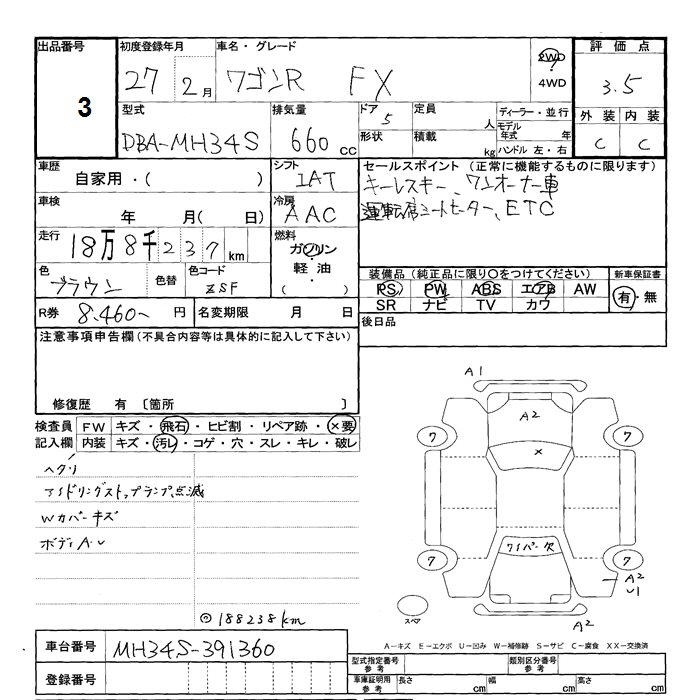 出品番号
3
初度登録年月
27 2月
車名・グレード
ワゴンR FX
2WD
4WD
評価点
3.5
外装 内装
C C
型式
DBA-MH34S
排気量
660cc
ドア
5
形状
定員
人
積載
kg
ディーラー・並行
モデル年式 年
ハンドル 左・右
車歴
自家用・( )
シフト
IAT
セールスポイント (正常に機能するものに限ります)
キーレスキー、ワンオーナー車
運転席シートヒーター、ETC
車検
年 月( 日)
冷房
AAC
走行
18万8千237km
燃料
ガソリン
軽油
( )
色
ブラウン
色替
色コード
ZSF
装備品(純正品に限り○をつけてください)
PS PW ABS エアB AW
SR ナビ TV カワ
新車保証書
有・無
R券 8,460- 円
名変期限 月 日
後日品
注意事項申告欄(不具合内容等は具体的に記入して下さい)
修復歴 有 〔箇所 〕
検査員記入欄
FW キズ・飛石・ヒビ割・リペア跡・×要
内装 キズ・汚レ・コゲ・穴・スレ・キレ・破レ
ヘタリ
アイドリングストップランプ点滅
Wカバーキズ
ボディA.U
◎188238km
A1
A2
7
7
×
ワイパー欠
7
7
A2
U1
A2
スペア
A-キズ E-エクボ U-凹み W-補修跡 S-サビ C-腐食 XX-交換済
車台番号 MH34S-391360
登録番号
型式指定番号
参考
類別区分番号
参考
車庫証明用
参考
長さ cm
幅 cm
高さ cm